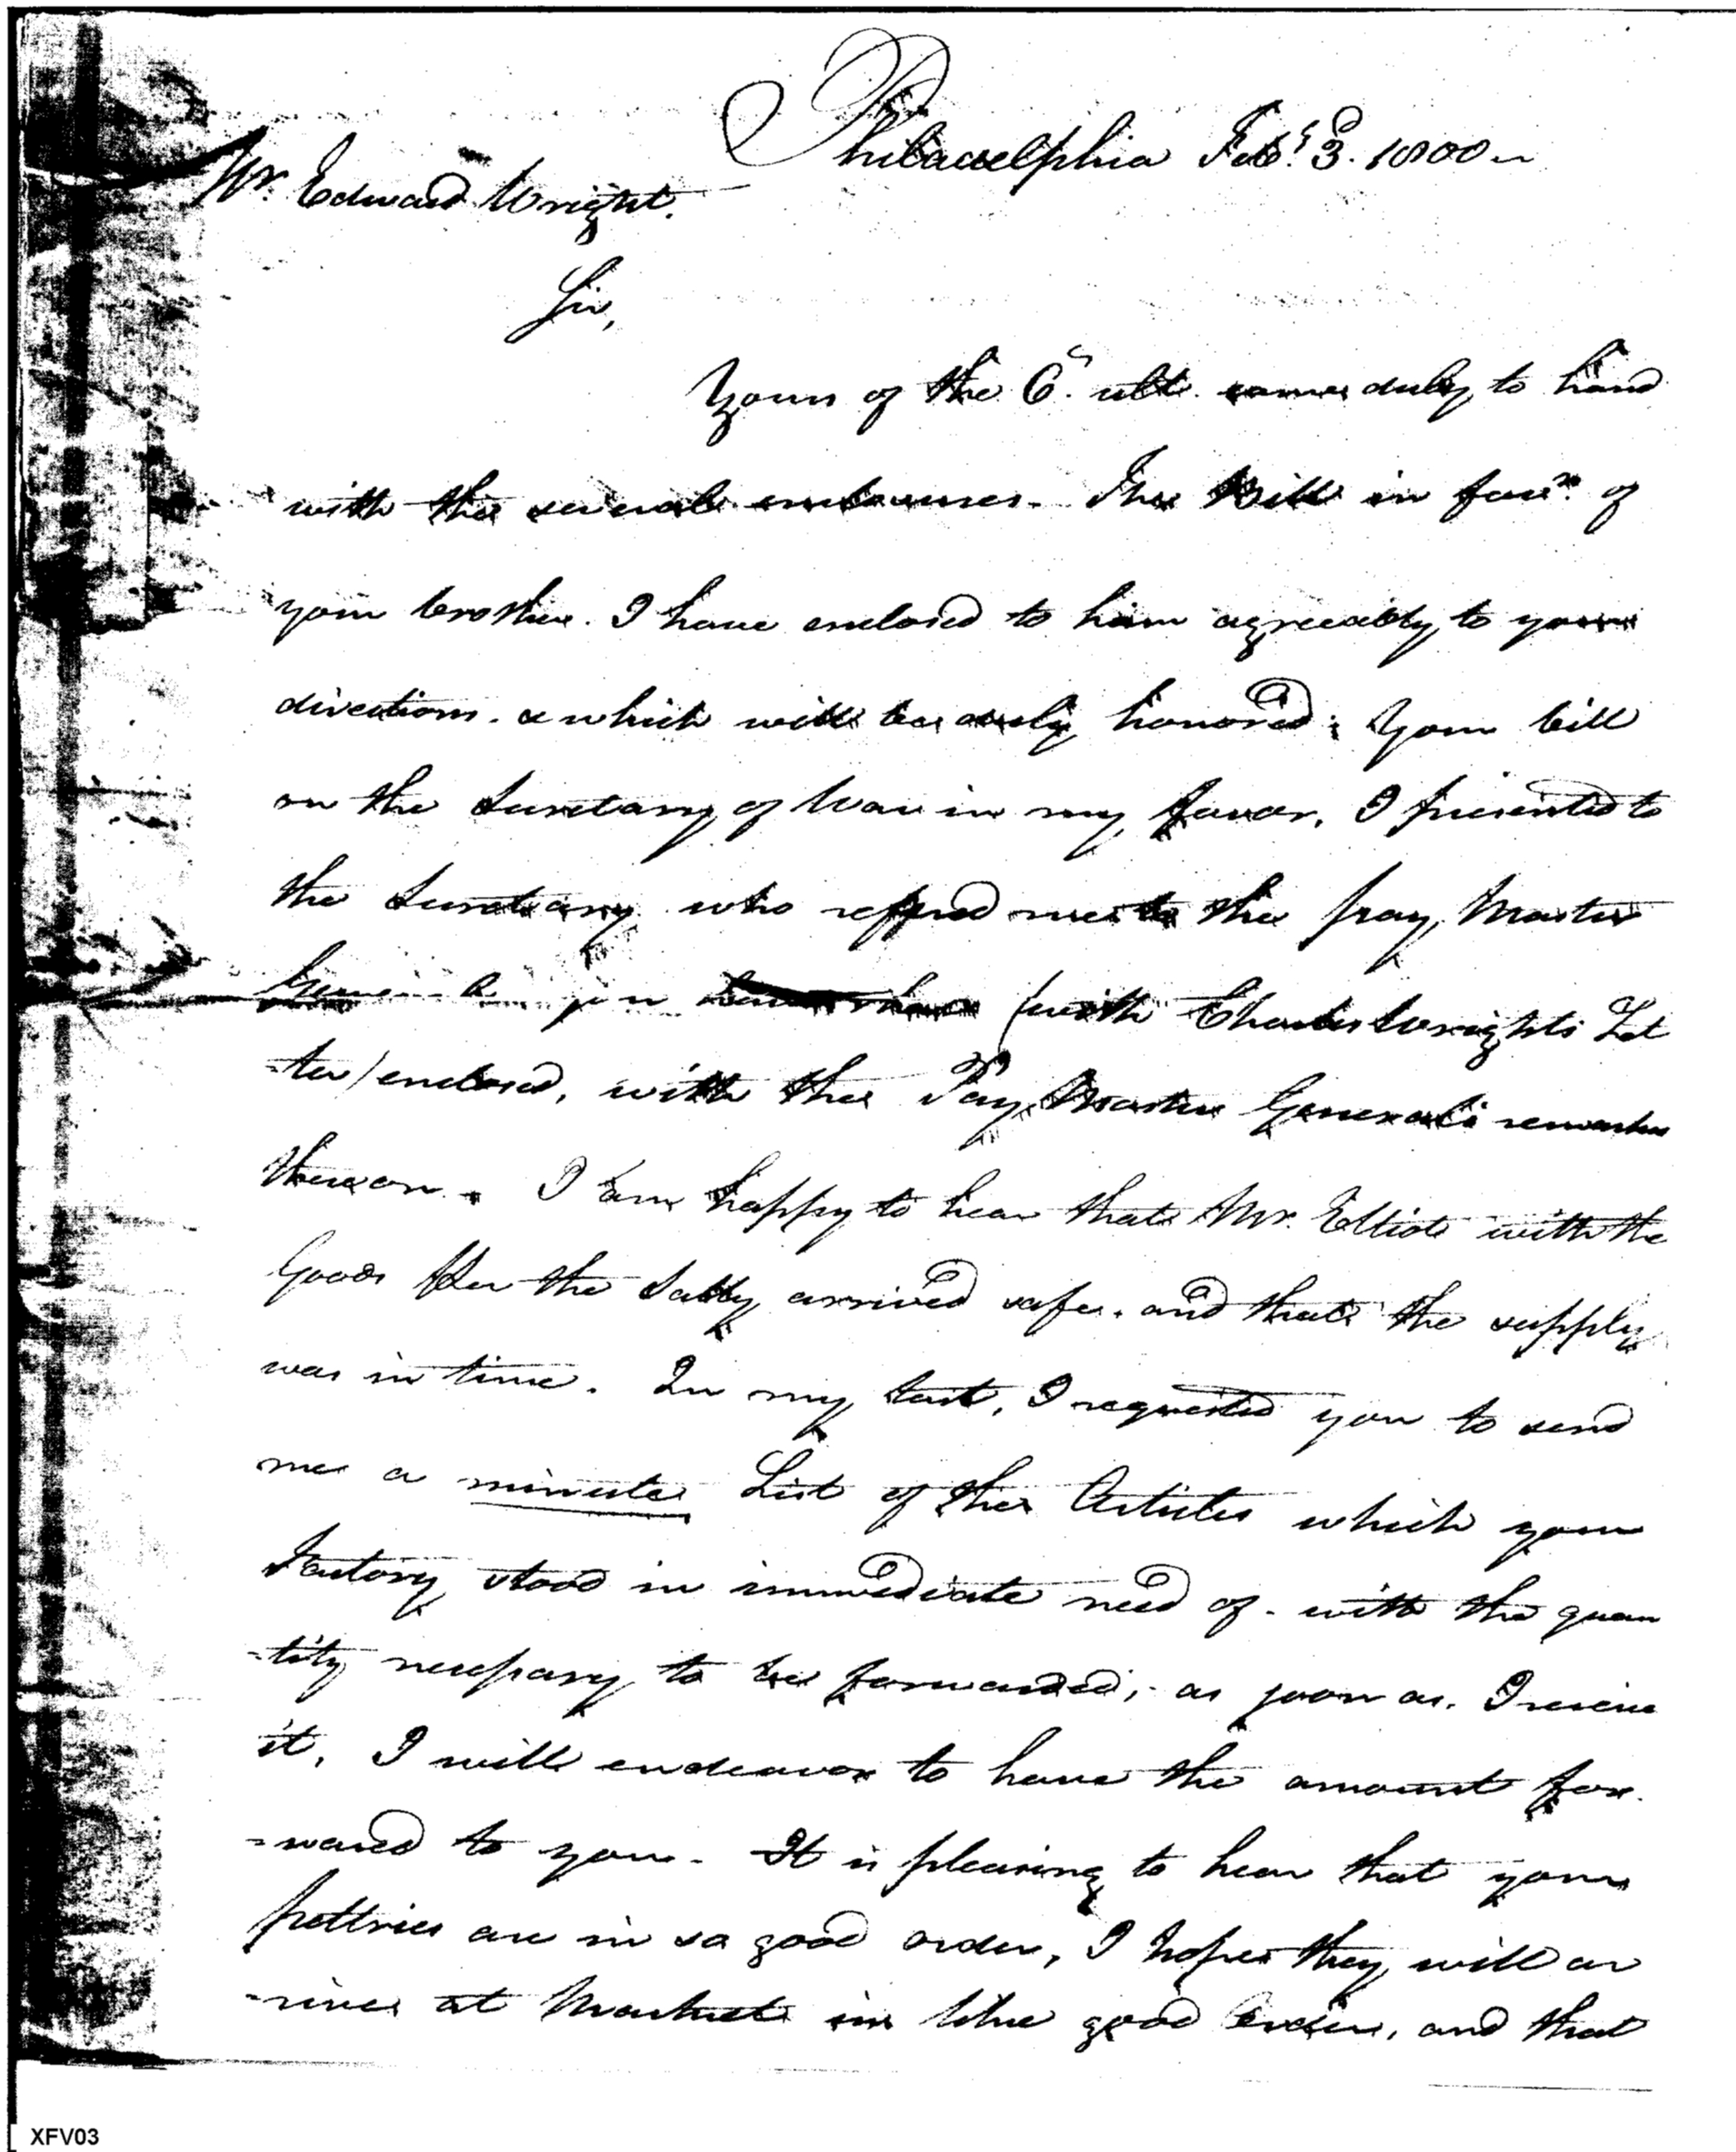 Philadelphia Feby. 3d. 1800
Mr. Edward Wright.
Sir,
Yours of the 6th. ulto. came duly to hand
with the several enclosures. The Bill in favr. of
your brother. I have enclosed to him agreeably to your
directions. & which will be duly honored. Your bill
on the Secretary of War in my favor, I presented to
the Secretary who refered me to the pay Master
(with Charles Wrights Let
-ter) enclosed, with the Pay Master General's remarks
thereon. I am happy to hear that Mr. Elliot with the
Goods Per the Sally arrived safe. and that the supply
was in time. In my last, I requested you to send
me a minute List of the Articles which your
Factory stood in immediate need of. with the quan
-tity necessary to be forwarded; as soon as. I receive
it. I will endeavor to have the amount for.
-wared to you. It is pleasing to hear that your
peltries are in so good order, I hope they will ar
-rive at Market in like good Order, and that
XFV03